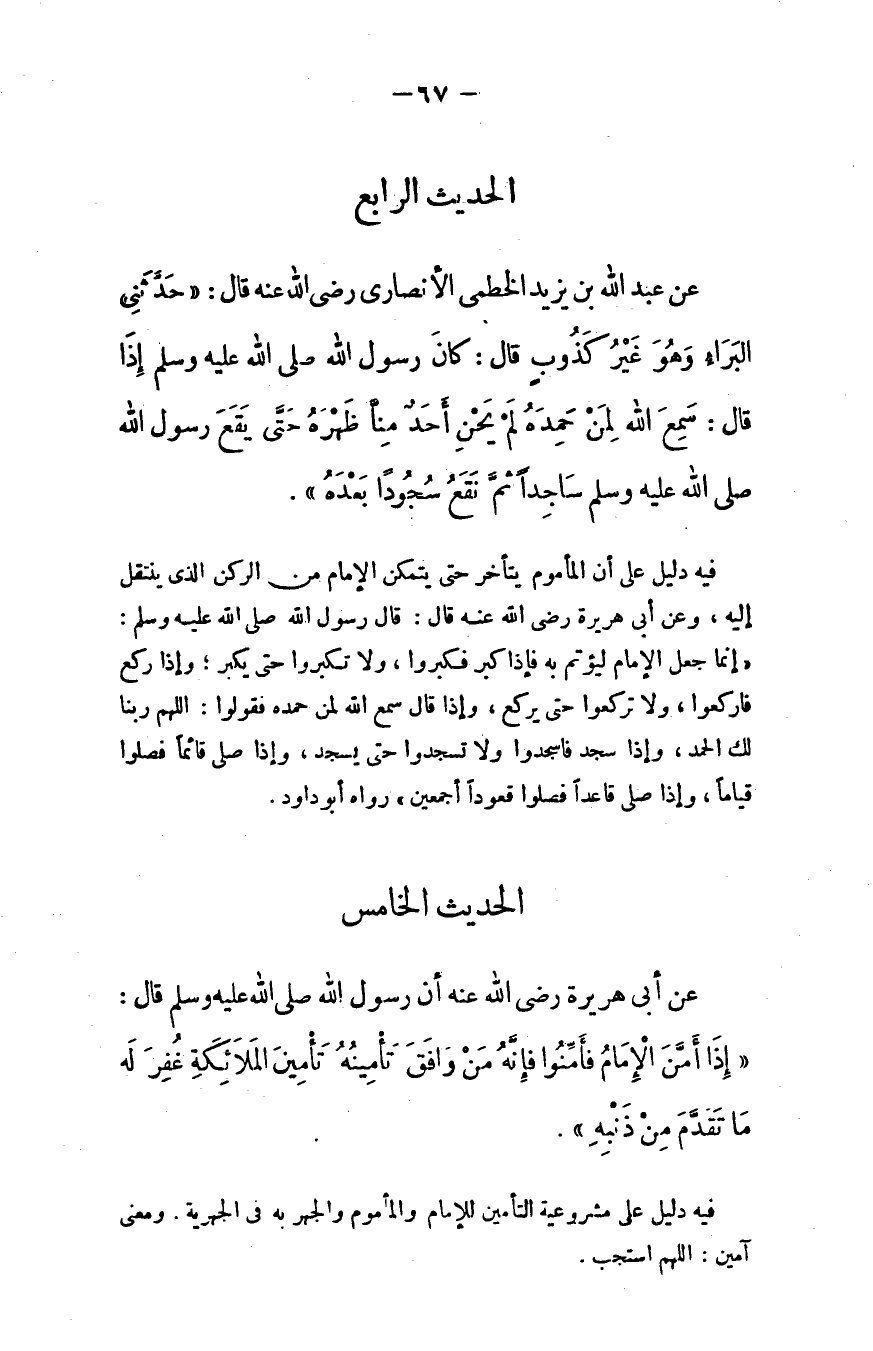 — ٦٧ —
الحديث الرابع
عن عبد الله بن يزيد الخطمى الأنصارى رضى الله عنه قال : « حَدَّثَنِي
البَرَاءِ وَهُوَ غَيْرُ كَذُوبٍ قال : كانَ رسول الله صلى الله عليه وسلم إِذَا
قال : سَمِعَ الله لِمَنْ حَمِدَهُ لَمْ يَحْنِ أَحَدٌ مِنَّا ظَهْرَهُ حَتَّى يَقَعَ رسول الله
صلى الله عليه وسلم سَاجِداً ثُمَّ نَقَعُ سُجُودًا بَعْدَهُ » .
فيه دليل على أن المأموم يتأخر حتى يتمكن الإمام من الركن الذى ينتقل
إليه ، وعن أبى هريرة رضى الله عنه قال : قال رسول الله صلى الله عليه وسلم :
« إنما جعل الإمام ليؤتم به فإذا كبر فكبروا ، ولا تكبروا حتى يكبر ؛ وإذا ركع
فاركعوا ، ولا تركعوا حتى يركع ، وإذا قال سمع الله لمن حمده فقولوا : اللهم ربنا
لك الحمد ، وإذا سجد فاسجدوا ولا تسجدوا حتى يسجد ، وإذا صلى قائماً فصلوا
قياماً ، وإذا صلى قاعداً فصلوا قعوداً أجمعين » رواه أبو داود .
الحديث الخامس
عن أبى هريرة رضى الله عنه أن رسول الله صلى الله عليه وسلم قال :
« إِذَا أَمَّنَ الْإِمَامُ فأَمِّنُوا فإِنَّهُ مَنْ وَافَقَ تَأْمِينُهُ تَأْمِينَ المَلَائِكَةِ غُفِرَ لَه
مَا تَقَدَّمَ مِنْ ذَنْبِهِ » .
فيه دليل على مشروعية التأمين للإمام والمأموم والجهر به فى الجهرية . ومعنى
آمين : اللهم استجب .